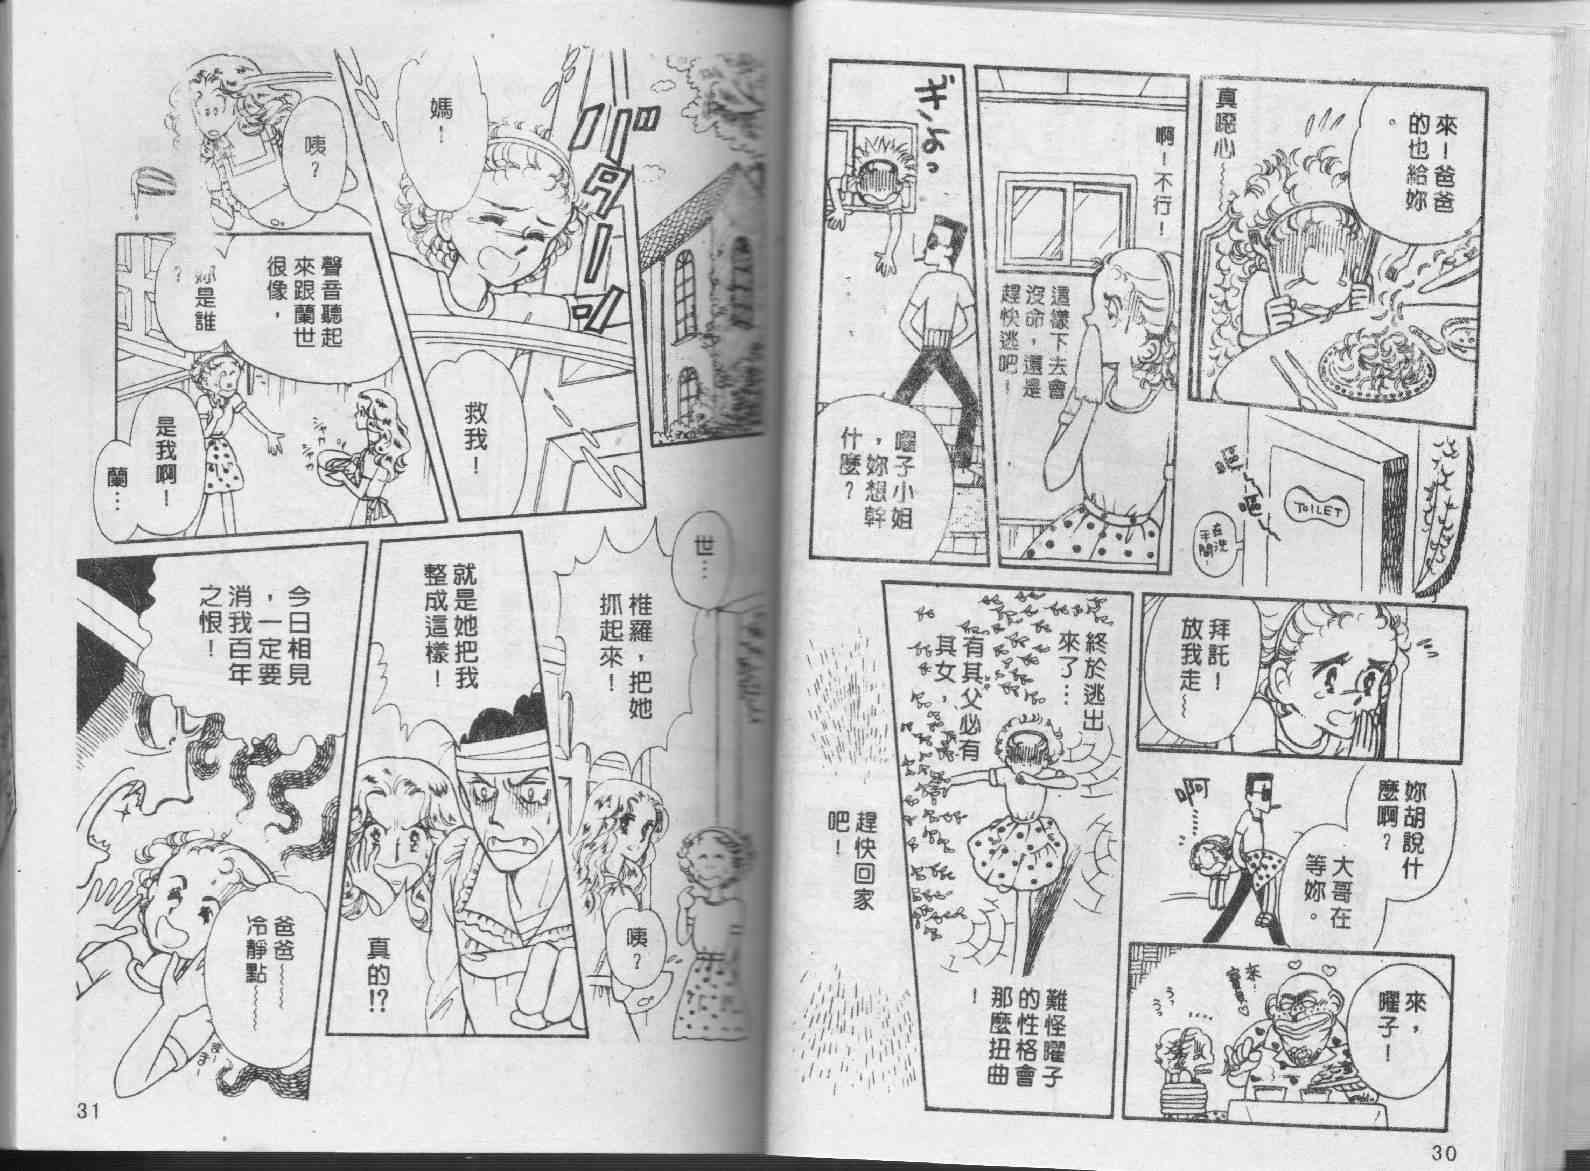 來！爸爸
的也給妳
。
真噁心～～
啊！不行！
這樣下去會
沒命，還是
趕快逃吧！
ギょっ
曜子小姐
，妳想幹
什麼？
嘔…
嘔…
TOILET
在洗
手間！
拜託！
放我走～
妳胡說什
麼啊？
啊……
大哥在
等妳。
來，
曜子！
來…
寶貝♡
うっ
うっ
終於逃出
來了…
有其父必有
其女，
難怪曜子
的性格會
那麼扭曲
！
趕快回家
吧！
30
バターン
媽！
救我！
咦？
聲音聽起
來跟蘭世
很像，
妳是誰
？
シャカ
シャカ
是我啊！
蘭…
世…
椎羅，把她
抓起來！
咦？
就是她把我
整成這樣！
真的!?
今日相見
，一定要
消我百年
之恨！
爸爸～～
冷靜點～～
31